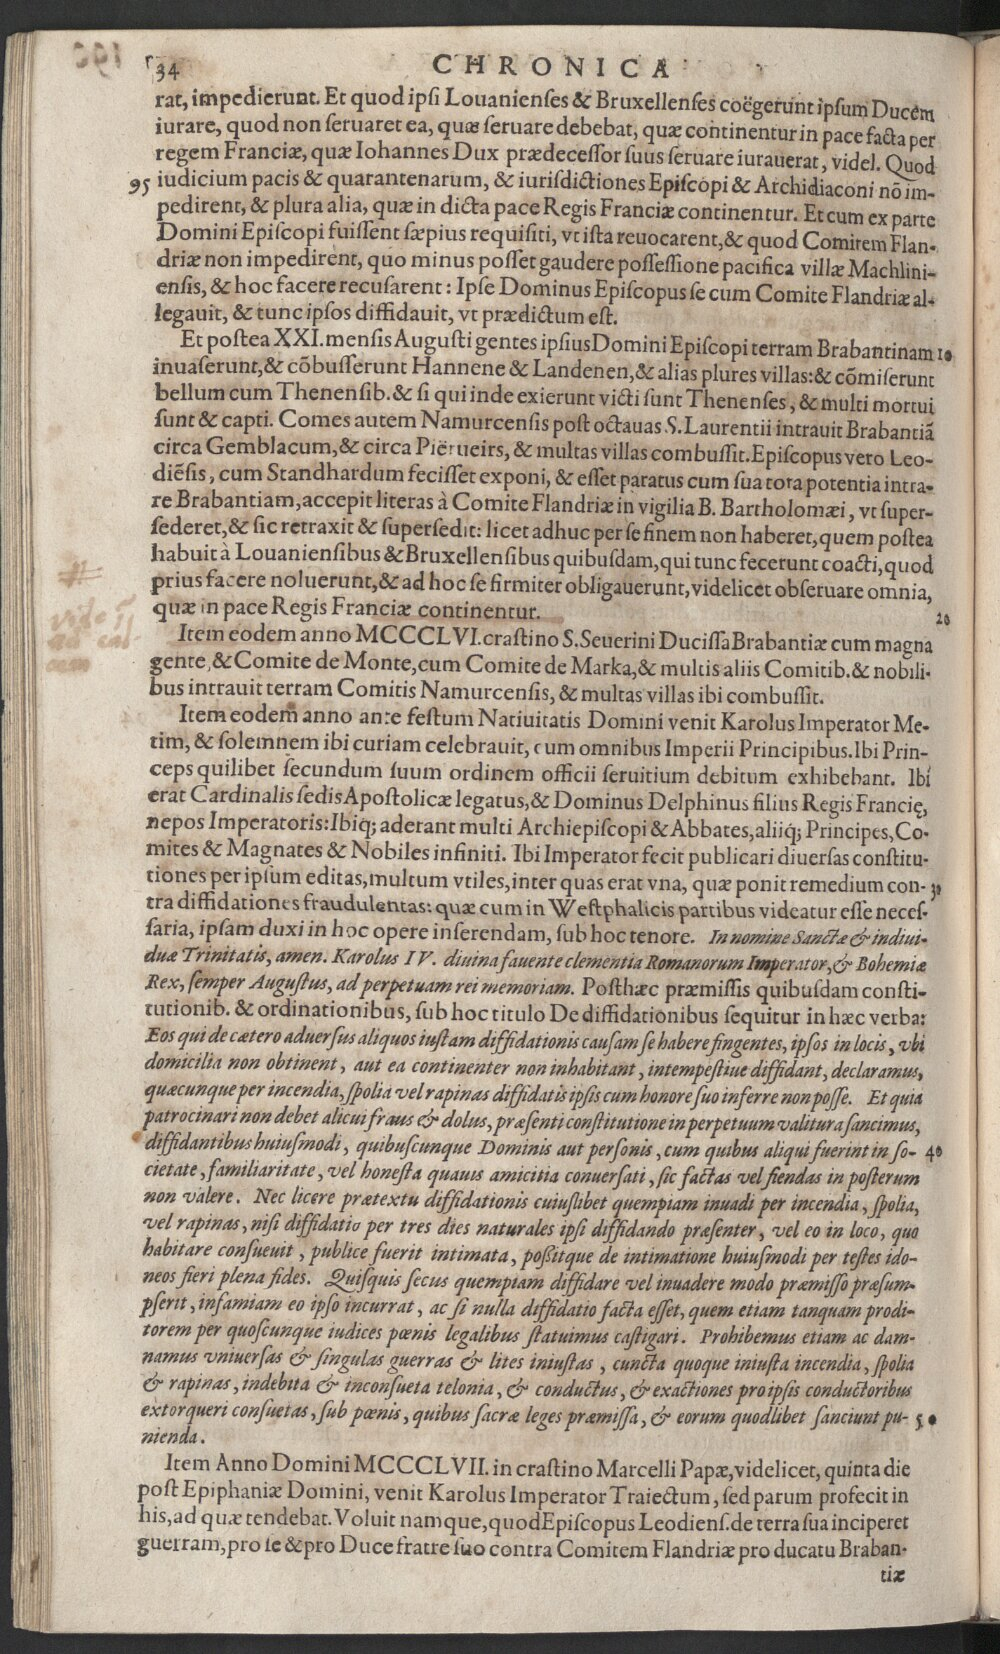 34 CHRONICA
rat, impedierunt. Et quod ipsi Louanienses & Bruxellenses coëgerunt ipsum Ducem
iurare, quod non seruaret ea, quæ seruare debebat, quæ continentur in pace facta per
regem Franciæ, quæ Iohannes Dux prædecessor suus seruare iurauerat, videl. Quod
95 iudicium pacis & quarantenarum, & iurisdictiones Episcopi & Archidiaconi nō im-
pedirent, & plura alia, quæ in dicta pace Regis Franciæ continentur. Et cum ex parte
Domini Episcopi fuissent sæpius requisiti, vt ista reuocarent, & quod Comitem Flan-
driæ non impedirent, quo minus posset gaudere possessione pacifica villæ Machlini-
ensis, & hoc facere recusarent: Ipse Dominus Episcopus se cum Comite Flandriæ al-
legauit, & tunc ipsos diffidauit, vt prædictum est.
Et postea XXI. mensis Augusti gentes ipsius Domini Episcopi terram Brabantinam 10
inuaserunt, & cōbusserunt Hannene & Landenen, & alias plures villas: & cōmiserunt
bellum cum Thenensib. & si qui inde exierunt victi sunt Thenenses, & multi mortui
sunt & capti. Comes autem Namurcensis post octauas S. Laurentii intrauit Brabantiā
circa Gemblacum, & circa Piërueirs, & multas villas combussit. Episcopus vero Leo-
diēsis, cum Standhardum fecisset exponi, & esset paratus cum sua tota potentia intra-
re Brabantiam, accepit literas à Comite Flandriæ in vigilia B. Bartholomæi, vt super-
sederet, & sic retraxit & supersedit: licet adhuc per se finem non haberet, quem postea
habuit à Louaniensibus & Bruxellensibus quibusdam, qui tunc fecerunt coacti, quod
prius facere noluerunt, & ad hoc se firmiter obligauerunt, videlicet obseruare omnia,
quæ in pace Regis Franciæ continentur. 20
Item eodem anno MCCCLVI. crastino S. Seuerini Ducissa Brabantiæ cum magna
gente, & Comite de Monte, cum Comite de Marka, & multis aliis Comitib. & nobili-
bus intrauit terram Comitis Namurcensis, & multas villas ibi combussit.
Item eodem anno ante festum Natiuitatis Domini venit Karolus Imperator Me-
tim, & solemnem ibi curiam celebrauit, cum omnibus Imperii Principibus. Ibi Prin-
ceps quilibet secundum suum ordinem officii seruitium debitum exhibebant. Ibi
erat Cardinalis sedis Apostolicæ legatus, & Dominus Delphinus filius Regis Francię,
nepos Imperatoris: Ibiq; aderant multi Archiepiscopi & Abbates, aliiq; Principes, Co-
mites & Magnates & Nobiles infiniti. Ibi Imperator fecit publicari diuersas constitu-
tiones per ipsum editas, multum vtiles, inter quas erat vna, quæ ponit remedium con- 30
tra diffidationes fraudulentas: quæ cum in Westphalicis partibus videatur esse neces-
saria, ipsam duxi in hoc opere inserendam, sub hoc tenore. In nomine Sanctæ & indiui-
duæ Trinitatis, amen. Karolus IV. diuina fauente clementia Romanorum Imperator, & Bohemiæ
Rex, semper Augustus, ad perpetuam rei memoriam. Posthæc præmissis quibusdam consti-
tutionib. & ordinationibus, sub hoc titulo De diffidationibus sequitur in hæc verba:
Eos qui de cætero aduersus aliquos iustam diffidationis causam se habere fingentes, ipsos in locis, vbi
domicilia non obtinent, aut ea continenter non inhabitant, intempestiue diffidant, declaramus,
quæcunque per incendia, spolia vel rapinas diffidatis ipsis cum honore suo inferre non posse. Et quia
patrocinari non debet alicui fraus & dolus, præsenti constitutione in perpetuum valitura sancimus,
diffidantibus huiusmodi, quibuscunque Dominis aut personis, cum quibus aliqui fuerint in so- 40
cietate, familiaritate, vel honesta quauis amicitia conuersati, sic factas vel fiendas in posterum
non valere. Nec licere prætextu diffidationis cuiuslibet quempiam inuadi per incendia, spolia,
vel rapinas, nisi diffidatio per tres dies naturales ipsi diffidando præsenter, vel eo in loco, quo
habitare consueuit, publice fuerit intimata, possitque de intimatione huiusmodi per testes ido-
neos fieri plena fides. Quisquis secus quempiam diffidare vel inuadere modo præmisso præsum-
pserit, infamiam eo ipso incurrat, ac si nulla diffidatio facta esset, quem etiam tanquam prodi-
torem per quoscunque iudices pœnis legalibus statuimus castigari. Prohibemus etiam ac dam-
namus vniuersas & singulas guerras & lites iniustas, cuncta quoque iniusta incendia, spolia
& rapinas, indebita & inconsueta telonia, & conductus, & exactiones pro ipsis conductoribus
extorqueri consuetas, sub pœnis, quibus sacræ leges præmissa, & eorum quodlibet sanciunt pu- 50
nienda.
Item Anno Domini MCCCLVII. in crastino Marcelli Papæ, videlicet, quinta die
post Epiphaniæ Domini, venit Karolus Imperator Traiectum, sed parum profecit in
his, ad quæ tendebat. Voluit namque, quod Episcopus Leodiens. de terra sua inciperet
guerram, pro se & pro Duce fratre suo contra Comitem Flandriæ pro ducatu Braban-
tiæ